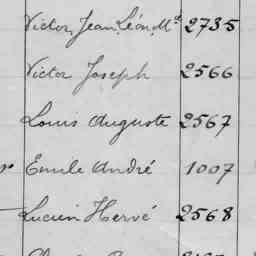 Victor, Jean, Léon, Me 2735
Victor Joseph 2566
Louis Auguste 2567
Emile André 1007
Lucien Hervé 2568